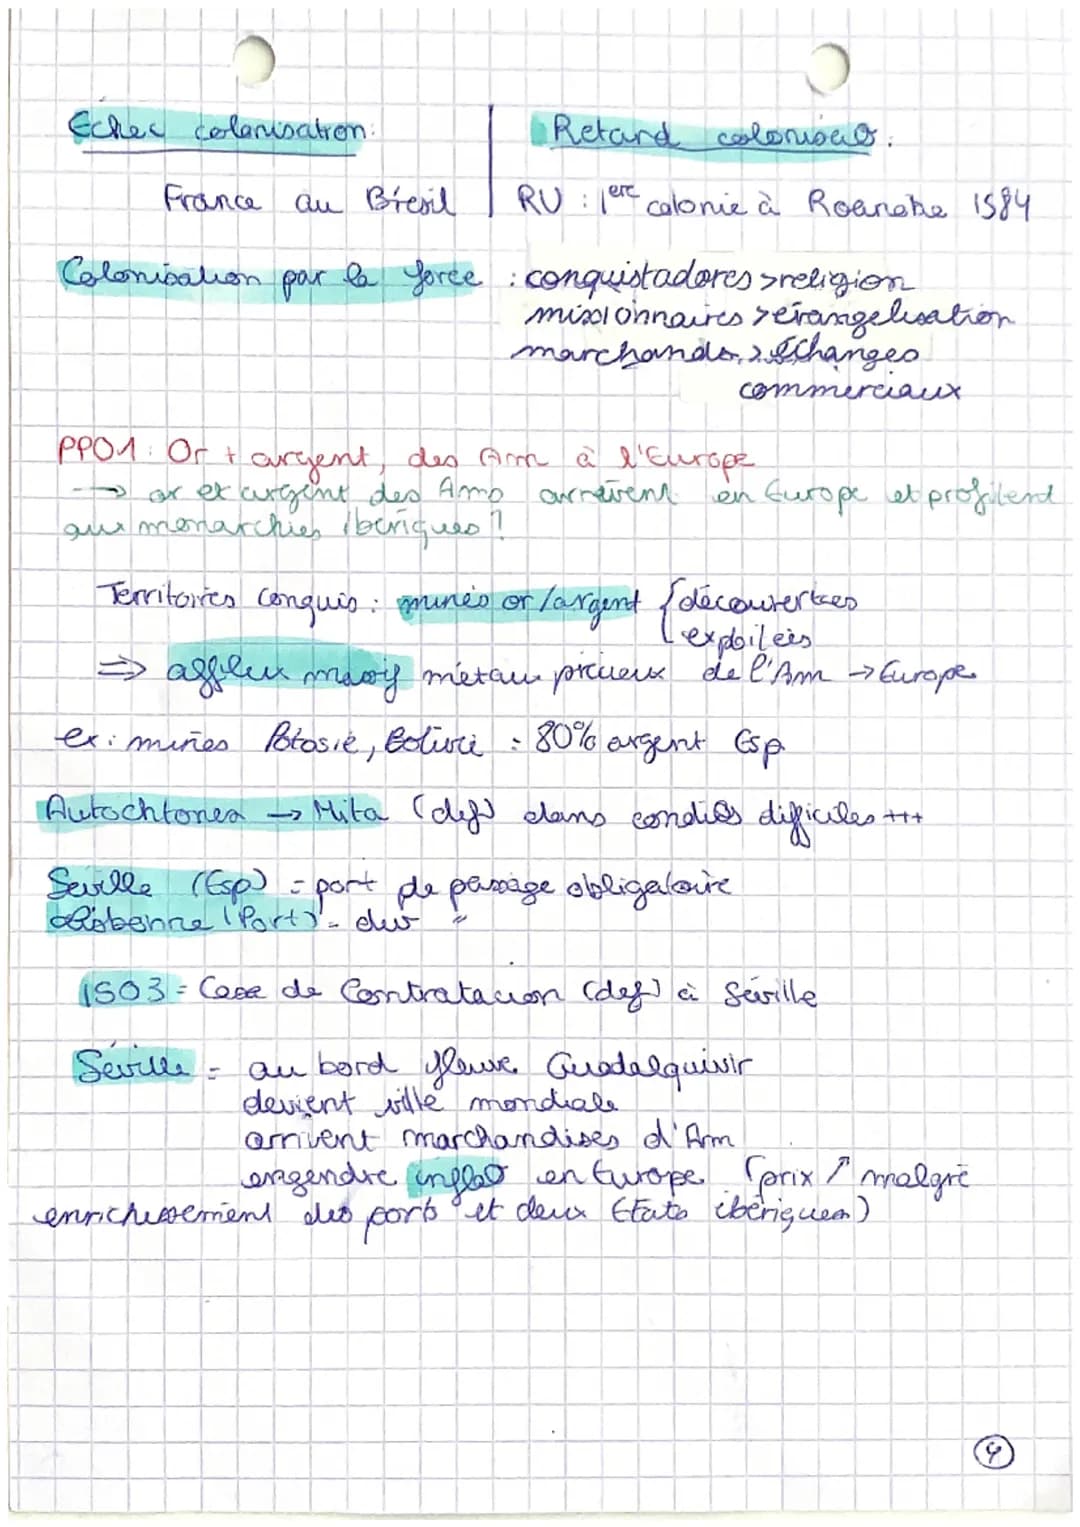 Echec colonisation:
Retard colonisa°:
France au Brésil
RU : 1ère colonie à Roanoke 1584
Colonisation par la force : conquistadores > religion
missionnaires > évangelisation
marchands > échanges
commerciaux
PPO1: Or + argent, des Am à l'Europe
→ or et argent des Ams arrivent en Europe et profitent
aux monarchies ibériques ?
Territoires conquis : mines or/argent { découvertes
exploitées
⇒ afflux massif métaux précieux de l'Am → Europe
ex: mines Potosie, Bolivie : 80% argent Esp
Autochtones → Mita (def) dans condi°s difficiles +++
Seville (Esp) = port de passage obligatoire
Lisbonne (Port) = "
1503 = Casa de Contratacion (def) à Séville
Séville = au bord fleuve Guadalquivir
devient ville mondiale
arrivent marchandises d'Am
engendre infla° en Europe (prix ↗ malgré
enrichissement des ports et deux Etats ibériques)
4